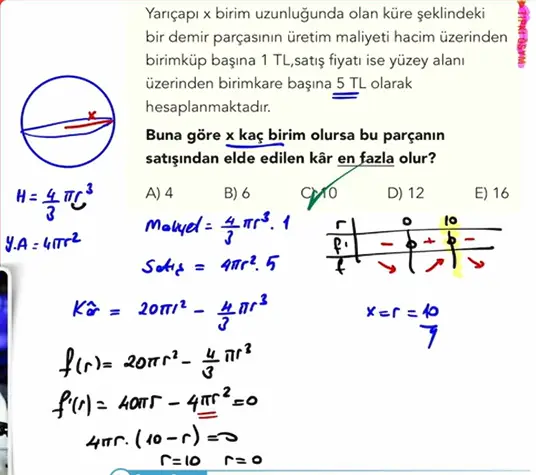 Yarıçapı x birim uzunluğunda olan küre şeklindeki
bir demir parçasının üretim maliyeti hacim üzerinden
birimküp başına 1 TL,satış fiyatı ise yüzey alanı
üzerinden birimkare başına 5 TL olarak
hesaplanmaktadır.
Buna göre x kaç birim olursa bu parçanın
satışından elde edilen kâr en fazla olur?
A) 4 B) 6 C) 10 D) 12 E) 16
x
H = 4/3 πr³
Y.A = 4πr²
Maliyet = 4/3 πr³ . 1
Satış = 4πr² . 5
Kâr = 20πr² - 4/3 πr³
f(r) = 20πr² - 4/3 πr³
f'(r) = 40πr - 4πr² = 0
4πr . (10 - r) = 0
r = 10 r = 0
r 0 10
f' - 0 + 0 -
f ↘ ↗ ↘
x = r = 10